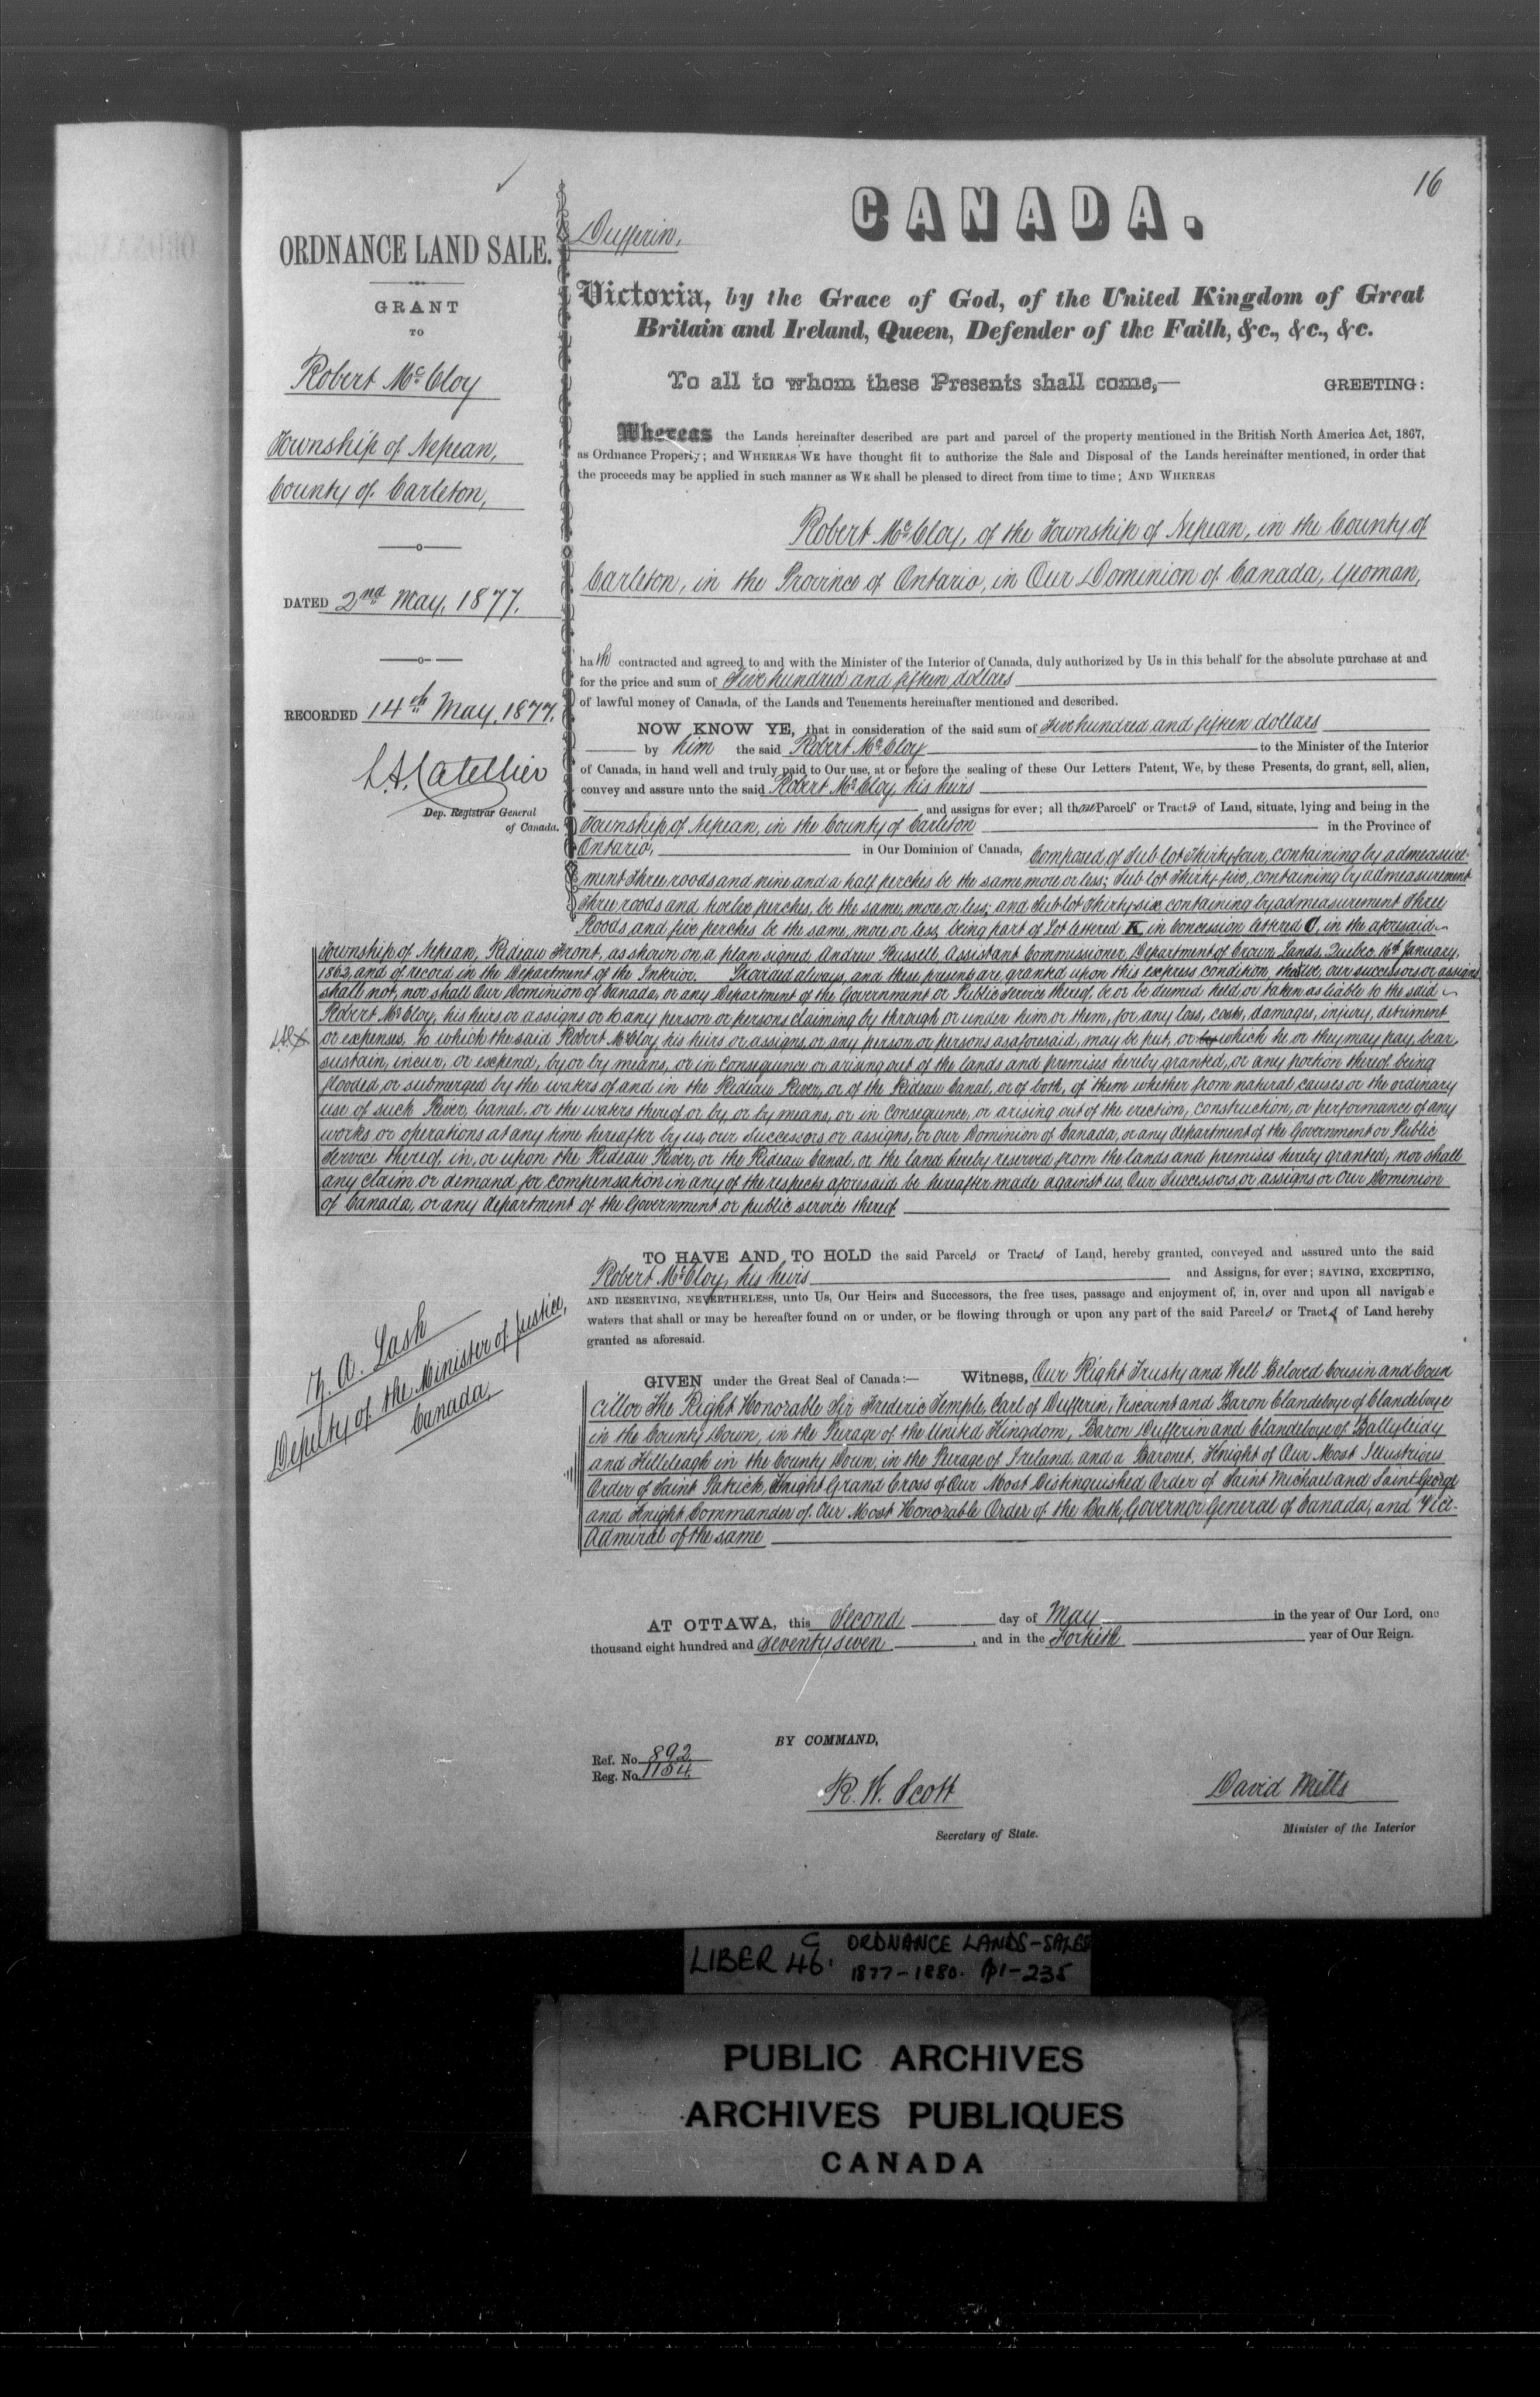 16
CANADA.
Dufferin,
ORDNANCE LAND SALE.
GRANT
TO
Robert McCloy
Township of Nepean,
County of Carleton,
DATED 2nd May, 1877.
RECORDED 14th May, 1877.
L.A. Catellier
Dep. Registrar General
of Canada.
Victoria, by the Grace of God, of the United Kingdom of Great
Britain and Ireland, Queen, Defender of the Faith, &c., &c., &c.
To all to whom these Presents shall come,— GREETING:
Whereas the Lands hereinafter described are part and parcel of the property mentioned in the British North America Act, 1867,
as Ordnance Property; and WHEREAS WE have thought fit to authorize the Sale and Disposal of the Lands hereinafter mentioned, in order that
the proceeds may be applied in such manner as WE shall be pleased to direct from time to time; AND WHEREAS
Robert McCloy, of the Township of Nepean, in the County of
Carleton, in the Province of Ontario, in Our Dominion of Canada, Yeoman,
hath contracted and agreed to and with the Minister of the Interior of Canada, duly authorized by Us in this behalf for the absolute purchase at and
for the price and sum of Five hundred and fifteen dollars
of lawful money of Canada, of the Lands and Tenements hereinafter mentioned and described.
NOW KNOW YE, that in consideration of the said sum of Five hundred and fifteen dollars
by him the said Robert McCloy to the Minister of the Interior
of Canada, in hand well and truly paid to Our use, at or before the sealing of these Our Letters Patent, We, by these Presents, do grant, sell, alien,
convey and assure unto the said Robert McCloy, his heirs
and assigns for ever; all those Parcels or Tracts of Land, situate, lying and being in the
Township of Nepean, in the County of Carleton in the Province of
Ontario, in Our Dominion of Canada, Composed of Sub lot Thirty four, containing by admeasure-
ment Three roods and nine and a half perches be the same more or less; Sub lot Thirty five, containing by admeasurement
Three roods and twelve perches, be the same, more or less; and Sub lot Thirty six, containing by admeasurement Three
Roods, and five perches be the same, more or less, being part of Lot lettered K, in Concession lettered C, in the aforesaid
Township of Nepean, Rideau Front, as shown on a plan signed, Andrew Russell, Assistant Commissioner Department of Crown Lands, Quebec 16th January,
1862, and of record in the Department of the Interior. Provided always, and these presents are granted upon this express condition, that We, our successors or assigns
shall not, nor shall Our Dominion of Canada, or any Department of the Government or Public Service thereof, be or be deemed held or taken as liable to the said
Robert McCloy, his heirs or assigns or to any person or persons claiming by through or under him or them, for any loss, costs, damages, injury, detriment
or expenses, to which the said Robert McCloy his heirs or assigns, or any person or persons as aforesaid, may be put, or by which he or they may pay, bear,
sustain, incur, or expend, by or by means, or in consequence or arising out of the lands and premises hereby granted, or any portion thereof being
flooded or submerged by the waters of and in the Rideau River, or of the Rideau Canal, or of both, of them whether from natural causes or the ordinary
use of such River, Canal, or the waters thereof or by, or by means, or in consequence, or arising out of the erection, construction, or performance of any
works or operations at any time hereafter by us, our Successors, or assigns, or our Dominion of Canada, or any department of the Government or Public
Service thereof, in, or upon the Rideau River, or the Rideau Canal, or the land hereby reserved from the lands and premises hereby granted, nor shall
any claim or demand for compensation in any of the respects aforesaid be hereafter made against us, Our Successors or assigns or Our Dominion
of Canada, or any department of the Government or public service thereof
TO HAVE AND TO HOLD the said Parcels or Tracts of Land, hereby granted, conveyed and assured unto the said
Robert McCloy, his heirs and Assigns, for ever; SAVING, EXCEPTING,
AND RESERVING, NEVERTHELESS, unto Us, Our Heirs and Successors, the free uses, passage and enjoyment of, in, over and upon all navigab e
waters that shall or may be hereafter found on or under, or be flowing through or upon any part of the said Parcels or Tracts of Land hereby
granted as aforesaid.
Z. A. Lash
Deputy of the Minister of Justice,
Canada,
GIVEN under the Great Seal of Canada:— Witness, Our Right Trusty and Well Beloved Cousin and Coun
cillor The Right Honorable Sir Frederic Temple, Earl of Dufferin, Viscount and Baron Clandeboye of Clandeboye
in the County Down, in the Peerage of the United Kingdom, Baron Dufferin and Clandeboye of Ballyleidy
and Killeleagh in the County Down, in the Peerage of Ireland, and a Baronet, Knight of Our Most Illustrious
Order of Saint Patrick, Knight Grand Cross of Our Most Distinguished Order of Saint Michael and Saint George
and Knight Commander of Our Most Honorable Order of the Bath, Governor General of Canada, and Vice-
Admiral of the same
AT OTTAWA, this Second day of May in the year of Our Lord, one
thousand eight hundred and Seventy seven, and in the Fortieth year of Our Reign.
BY COMMAND,
Ref. No. 892.
Reg. No. 1154.
R. W. Scott
Secretary of State.
David Mills
Minister of the Interior
LIBER 46. C ORDNANCE LANDS-SALES
1877-1880. p1-235
PUBLIC ARCHIVES
ARCHIVES PUBLIQUES
CANADA